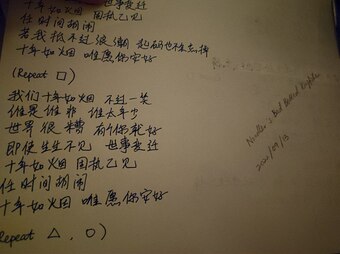 十年如烟 世事变迁
任时间胡闹
若我抵不过浪潮 起码也不去掉
十年如烟 唯愿你安好
(Repeat □)
我们十年如烟 不过一笑
谁是谁非 谁太年少
世界很糟 有个你就好
即使生生不见 世事变迁
十年如烟 固执己见
任时间胡闹
十年如烟 唯愿你安好
Repeat △, ○)
2021/09/13